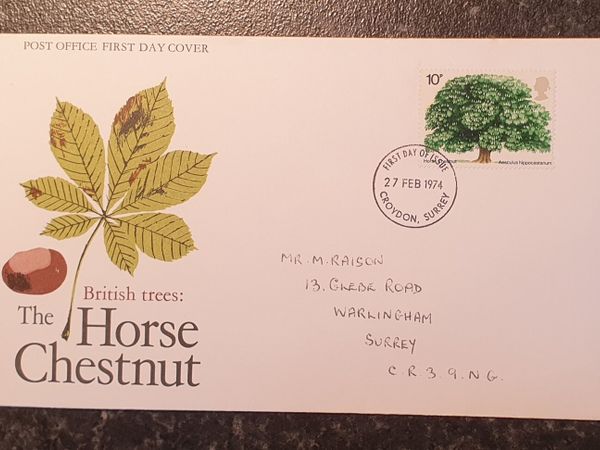 POST OFFICE FIRST DAY COVER
10P
Horse Chestnut Aesculus hippocastanum
FIRST DAY OF ISSUE
27 FEB 1974
CROYDON, SURREY
MR. M. RAISON
13. GLEBE ROAD
WARLINGHAM
SURREY
C.R.3.9.N.G.
British trees:
The Horse
Chestnut